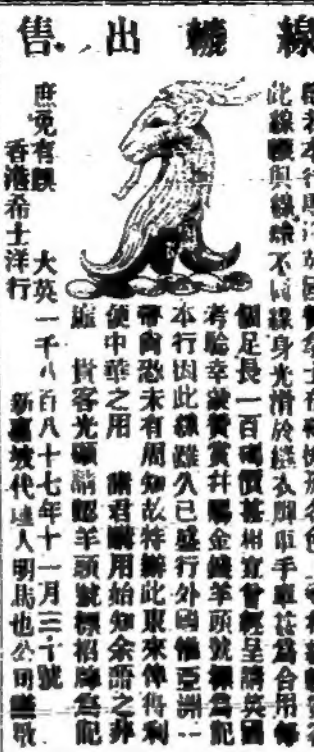 線轆出售
此線轆與線球不同線身光滑於縫衣脚車手車甚為合用每
個足長一百碼價甚相宜曾經呈請英國
考驗幸蒙獎賞并賜金錢羊頭號標為記
本行因此線雖久已盛行外國惟亞洲一
帶尚恐未有周知故特辦此東來俾得利
便中華之用 諸君購用始知余語之非
謊 貴客光顧請認羊頭號標招牌為記
庶免有誤 大英一千八百八十七年十一月二十號
香港希士洋行 新嘉坡代理人明馬也公司謹啟